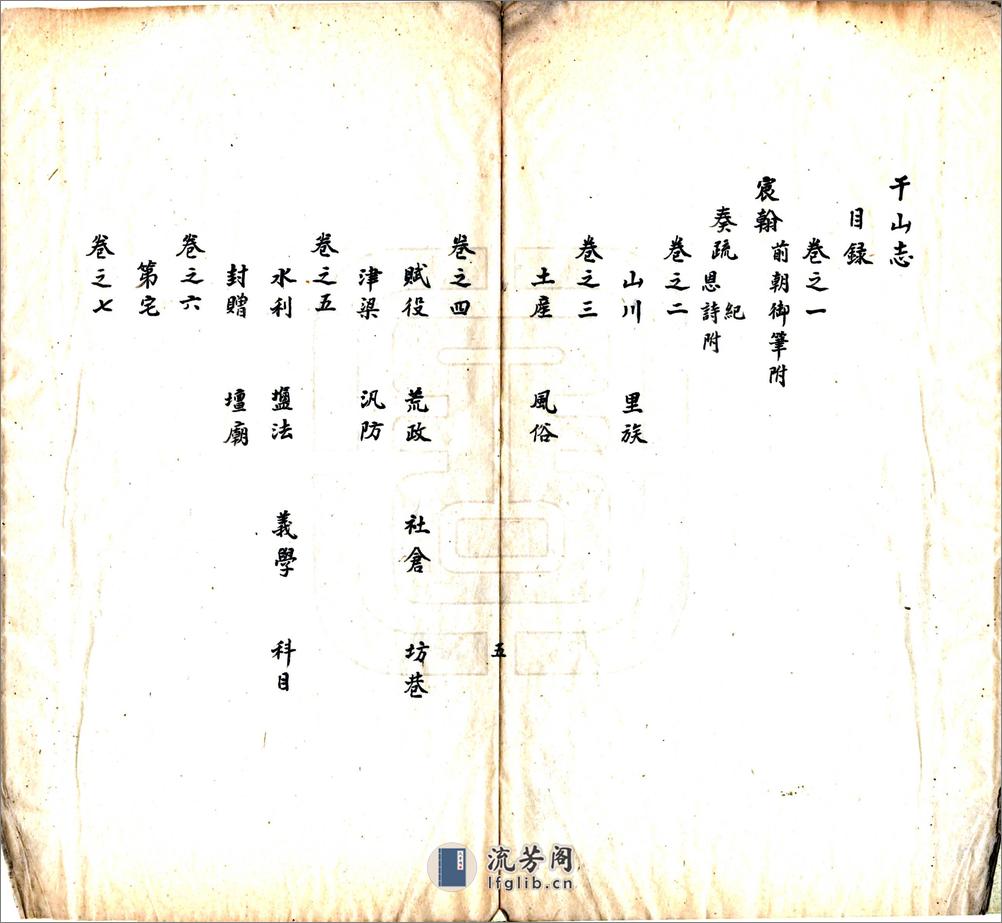 干山志
目録
卷之一
宸翰 前朝御筆附
奏疏 恩紀詩附
卷之二
山川 里族
卷之三
土産 風俗
五
卷之四
賦役 荒政 社倉 坊巷
津梁 汛防
卷之五
水利 鹽法 義學 科目
封贈 壇廟
卷之六
第宅
卷之七
流芳阁
lfglib.cn